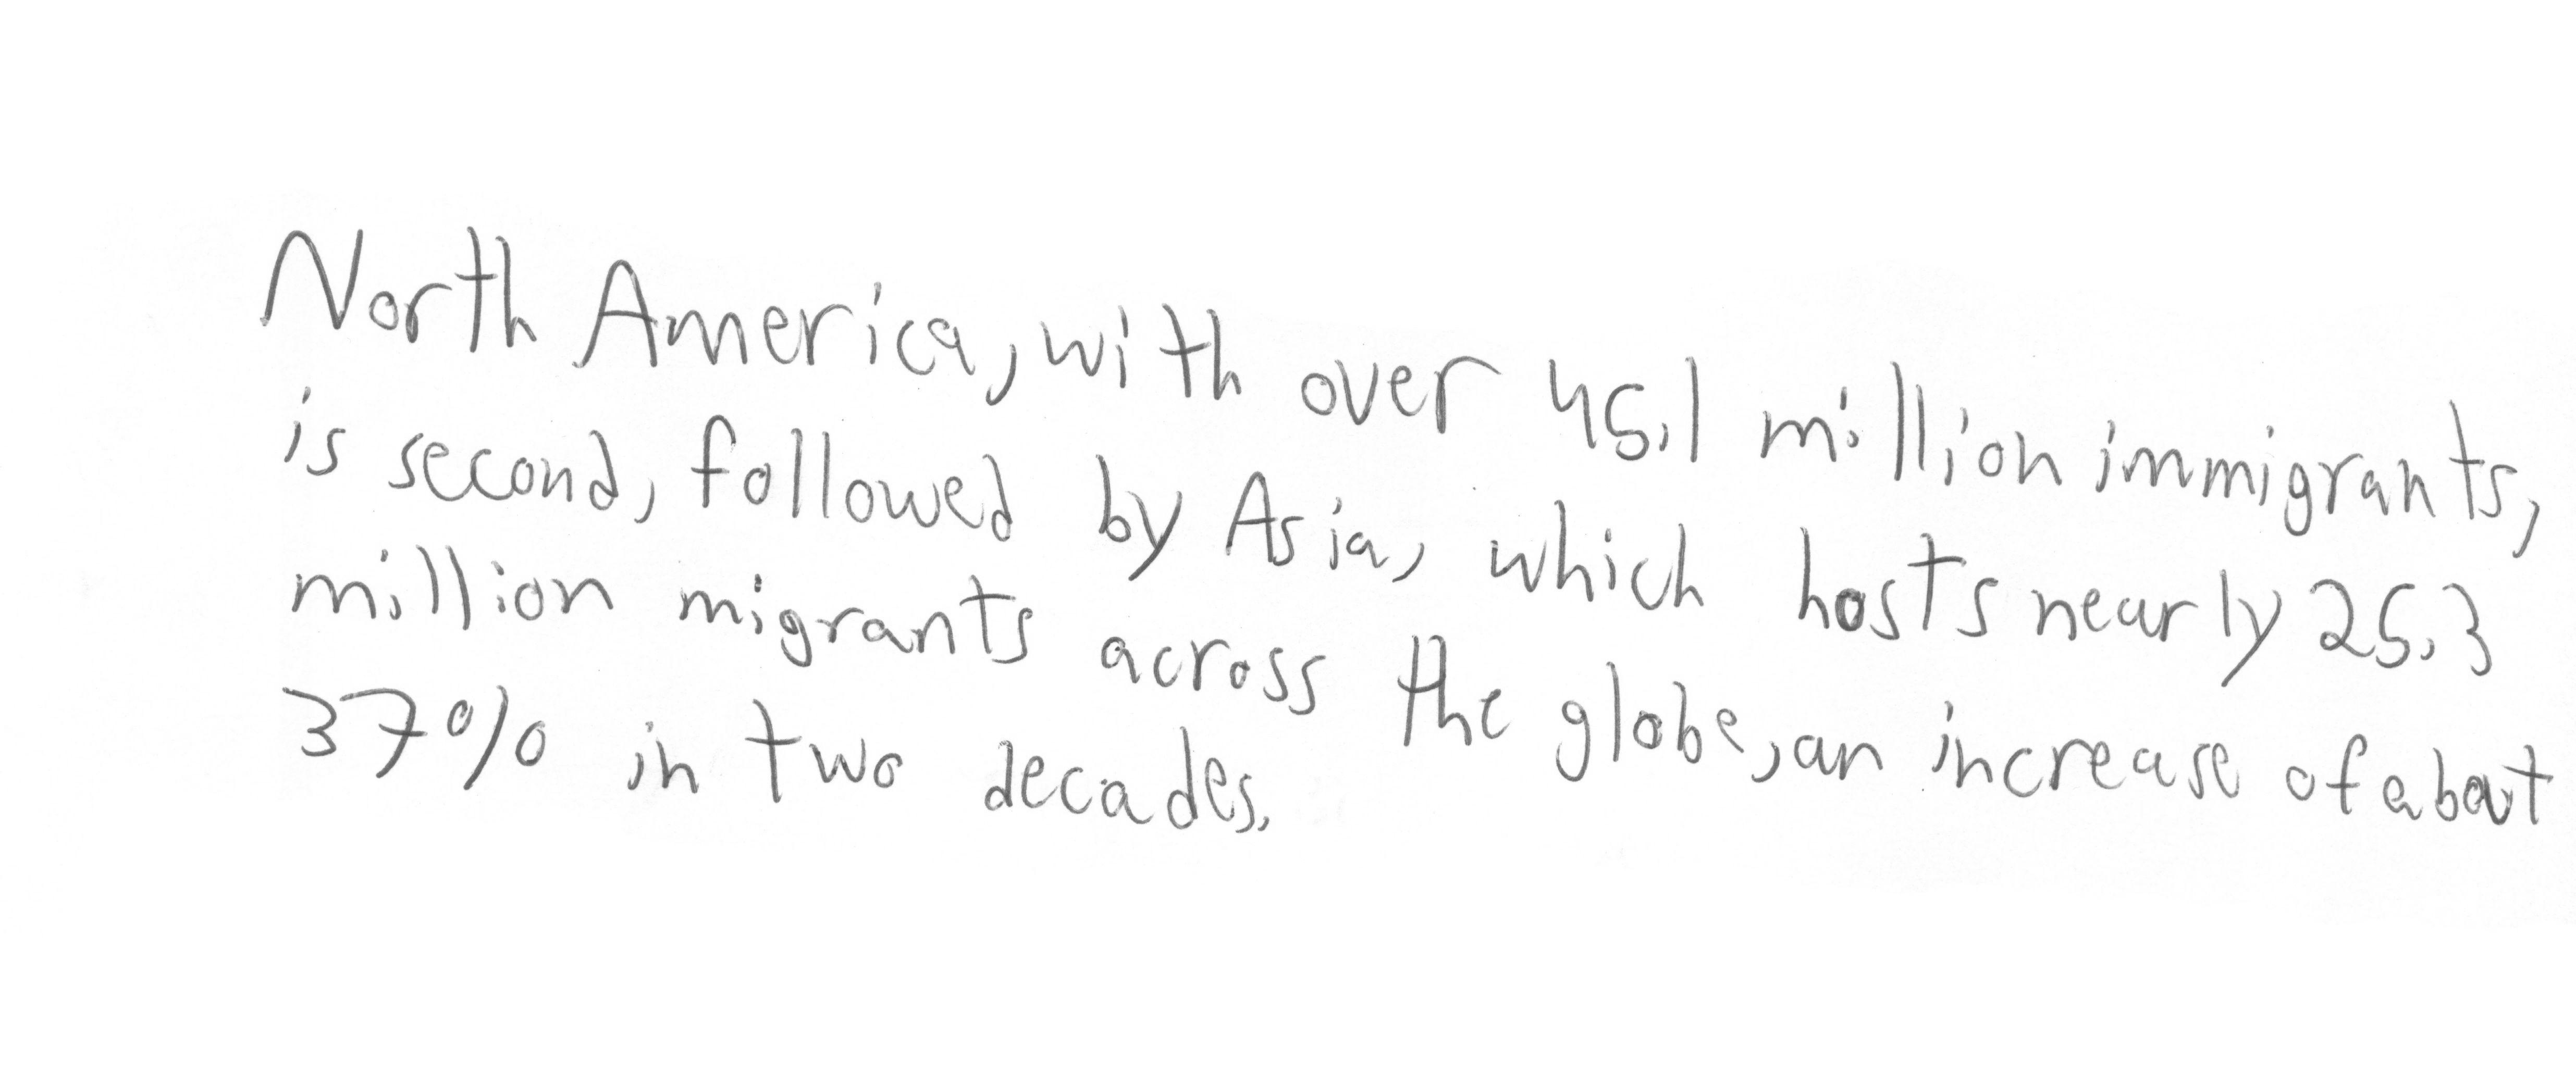 North America, with over 45.1 million immigrants,
is second, followed by Asia, which hosts nearly 25.3
million migrants across the globe, an increase of about
37% in two decades.